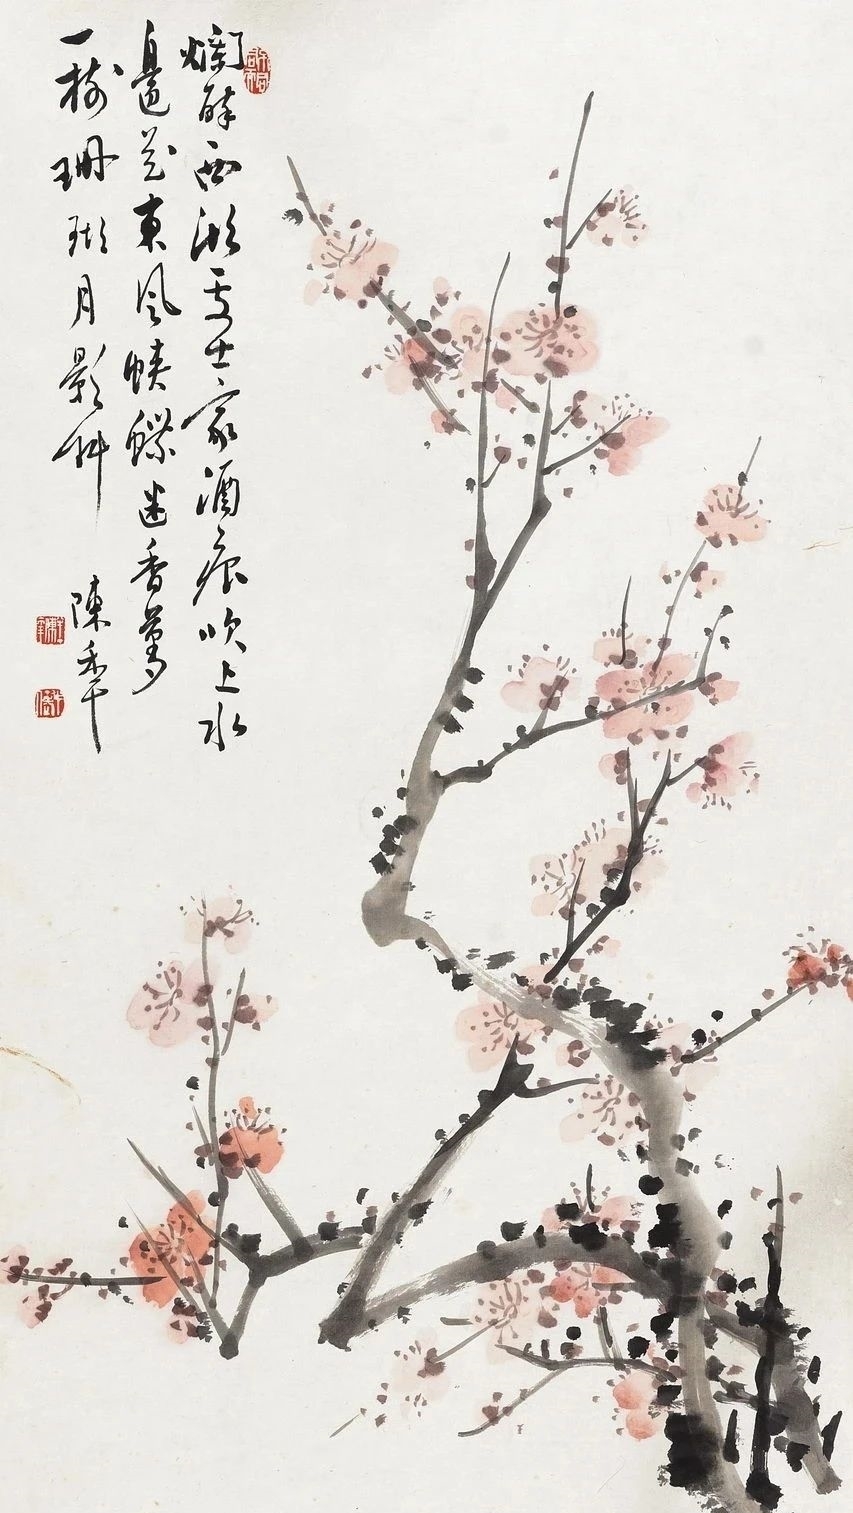 爛醉西湖處士家酒痕吹上水
邊花東風蛺蝶迷香夢
一樹珊瑚月影斜 陳秊